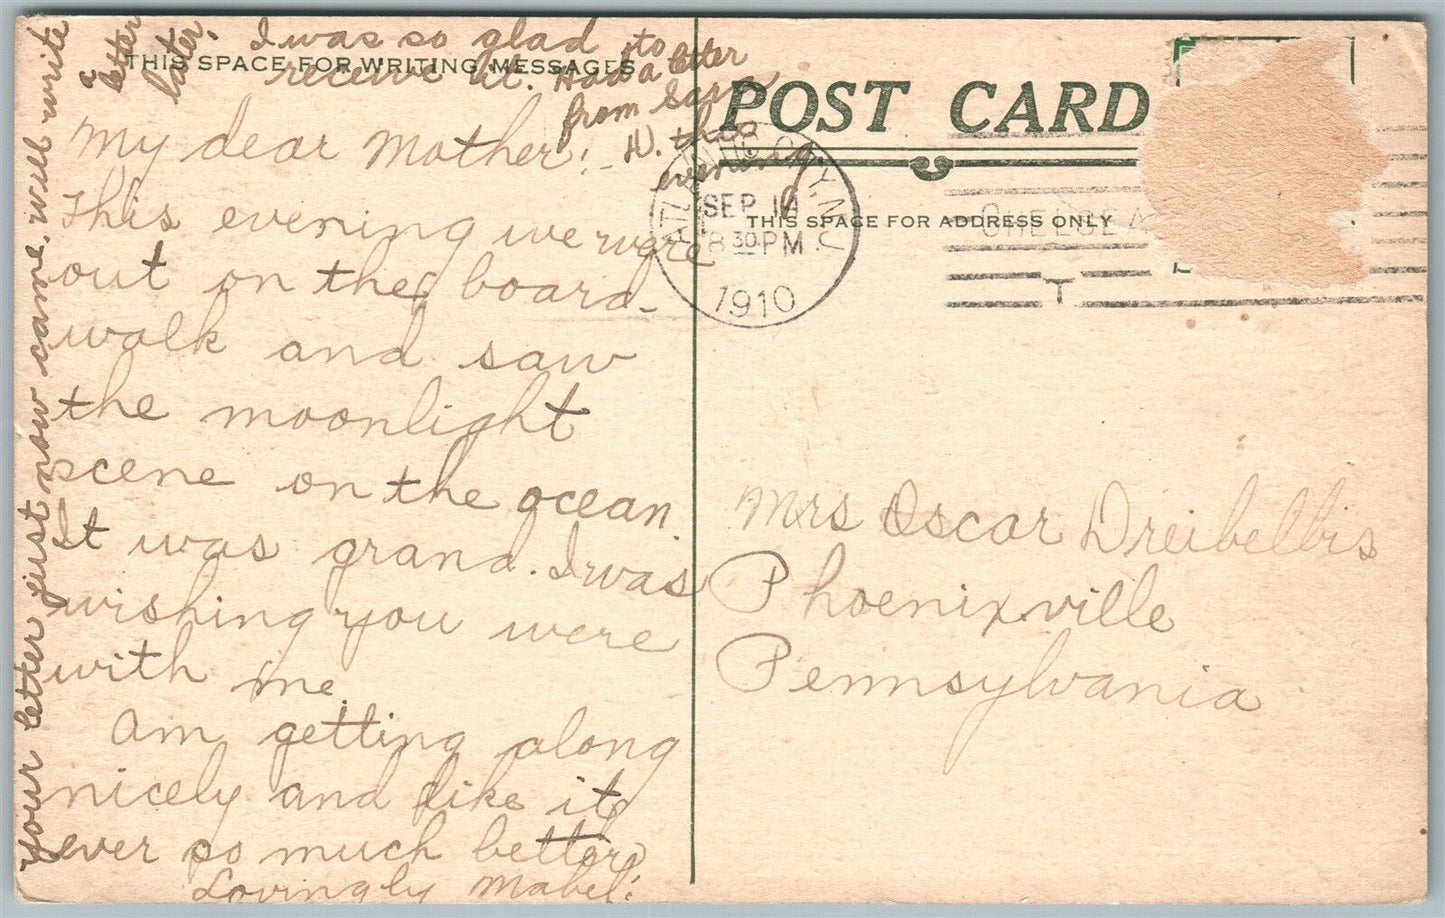 THIS SPACE FOR WRITING MESSAGES
My dear Mother:-
This evening we were
out on the board-
walk and saw
the moonlight
scene on the ocean
It was grand. I was
wishing you were
with me.
Am getting along
nicely and like it
ever so much better.
Lovingly Mabel.
your letter just now came, will write
a letter
later.
I was so glad to
receive it. Had a letter
from Sara
H. this
evening
POST CARD
THIS SPACE FOR ADDRESS ONLY
ATLANTIC CITY, N.J.
SEP 14
8 30 PM
1910
T
Mrs Oscar Dreibelbis
Phoenixville
Pennsylvania